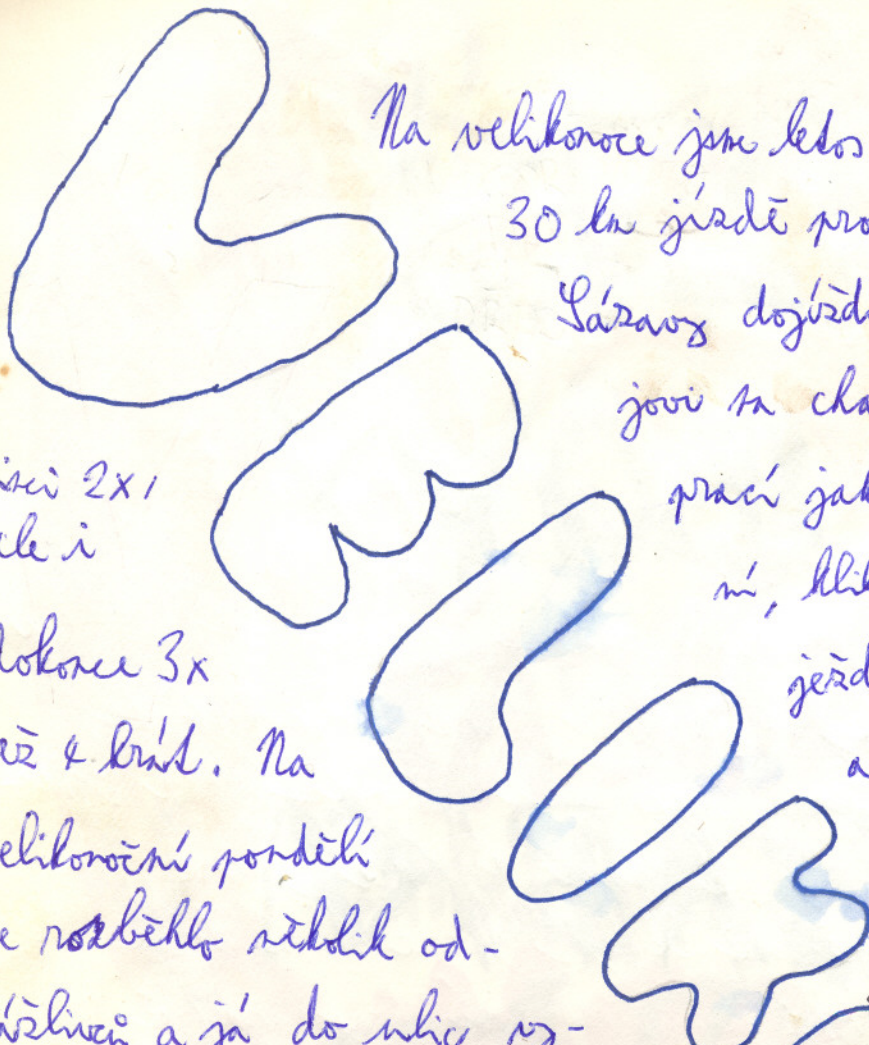 Na velikonoce jsme letos
30 km jízdě pro
Sázavy dojížd
jovi na cha
prací jak
ní, klik
ježd
a
isci 2x,
ele i
dokonce 3x
ež 4 krát. Na
elikonoční pondělí
e rozběhlo několik od-
ážlivců a já do ulic vy-